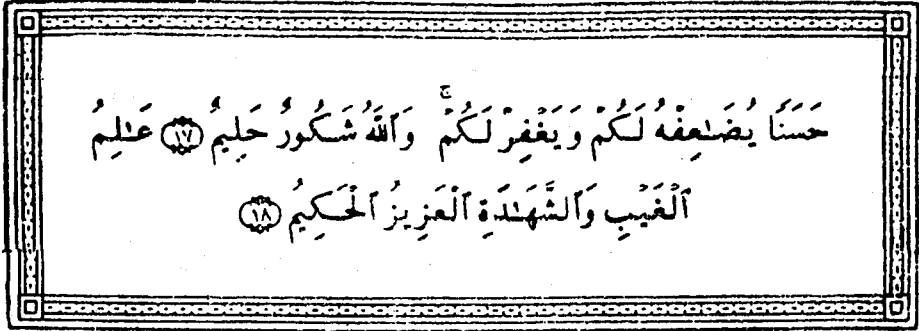 حَسَنًا يُضَـٰعِفْهُ لَكُمْ وَيَغْفِرْ لَكُمْ ۚ وَٱللَّهُ شَكُورٌ حَلِيمٌ ١٧ عَـٰلِمُ
ٱلْغَيْبِ وَٱلشَّهَـٰدَةِ ٱلْعَزِيزُ ٱلْحَكِيمُ ١٨